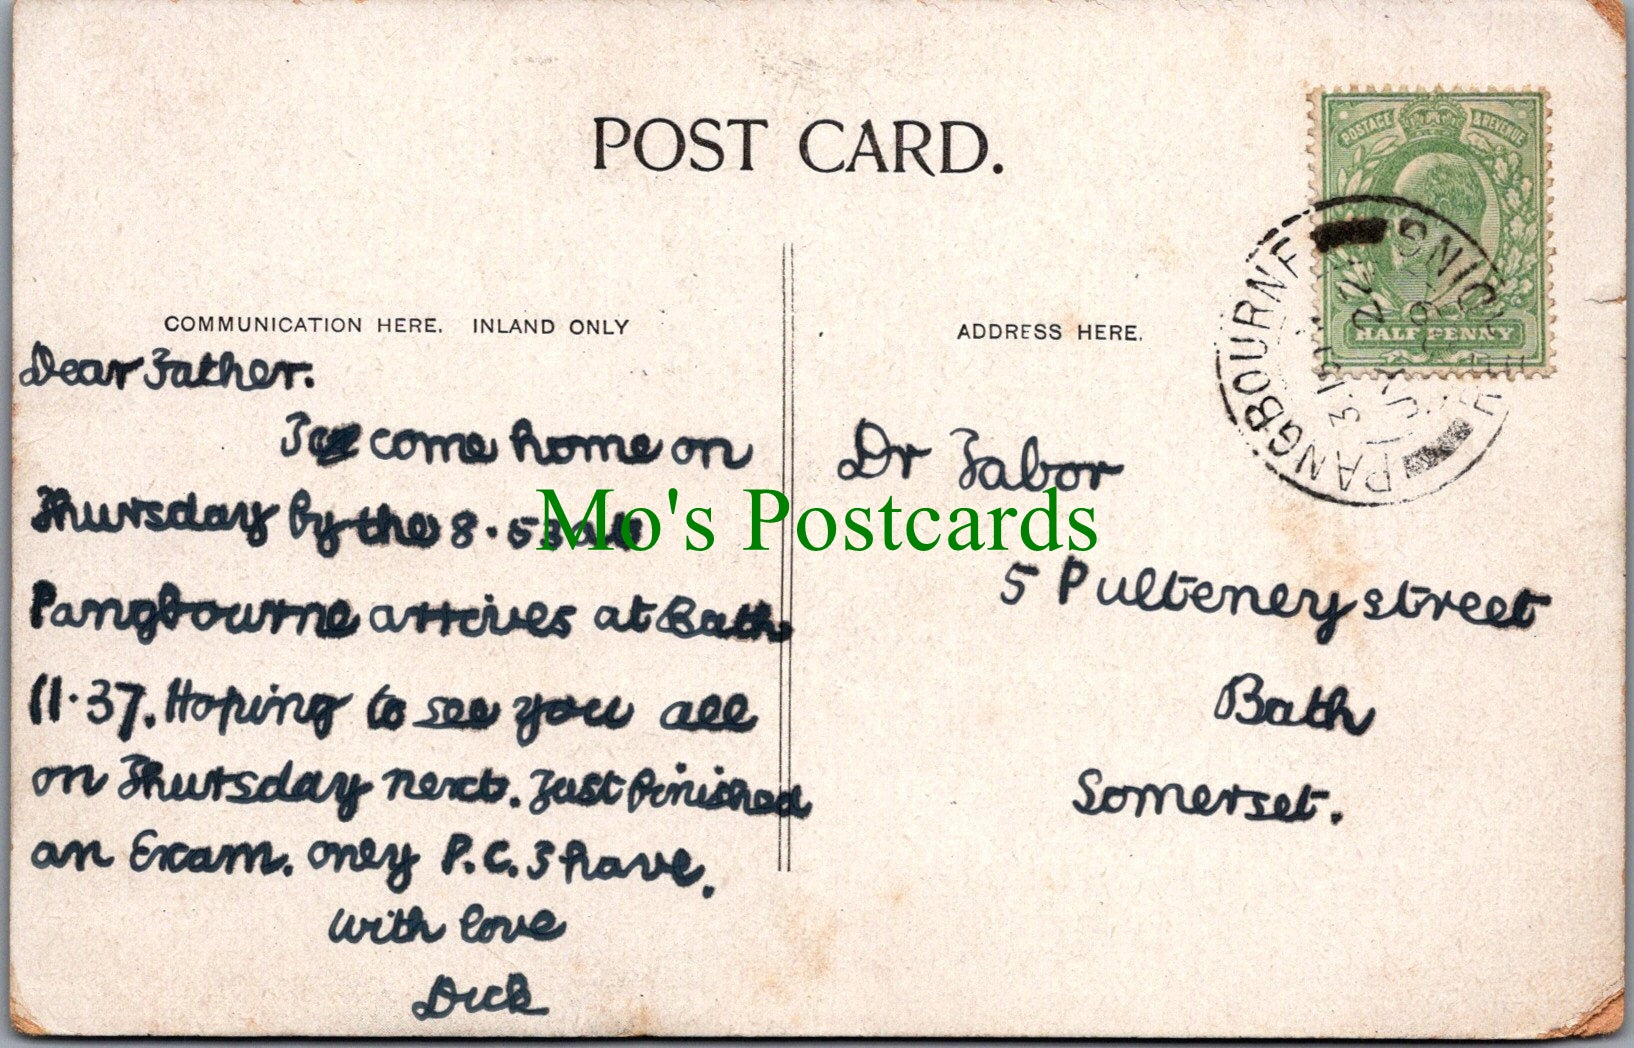 POST CARD.
POSTAGE & REVENUE
HALF PENNY
PANGBOURNE
READING
COMMUNICATION HERE. INLAND ONLY
ADDRESS HERE.
Dear Father.
I come home on
Thursday by the 8.53 at
Pangbourne arrives at Bath
11.37. Hoping to see you all
on Thursday next. Just finished
an Exam. only P.C. I have.
with love
Dick
Dr Tabor
5 Pulteney street
Bath
Somerset.
Mo's Postcards